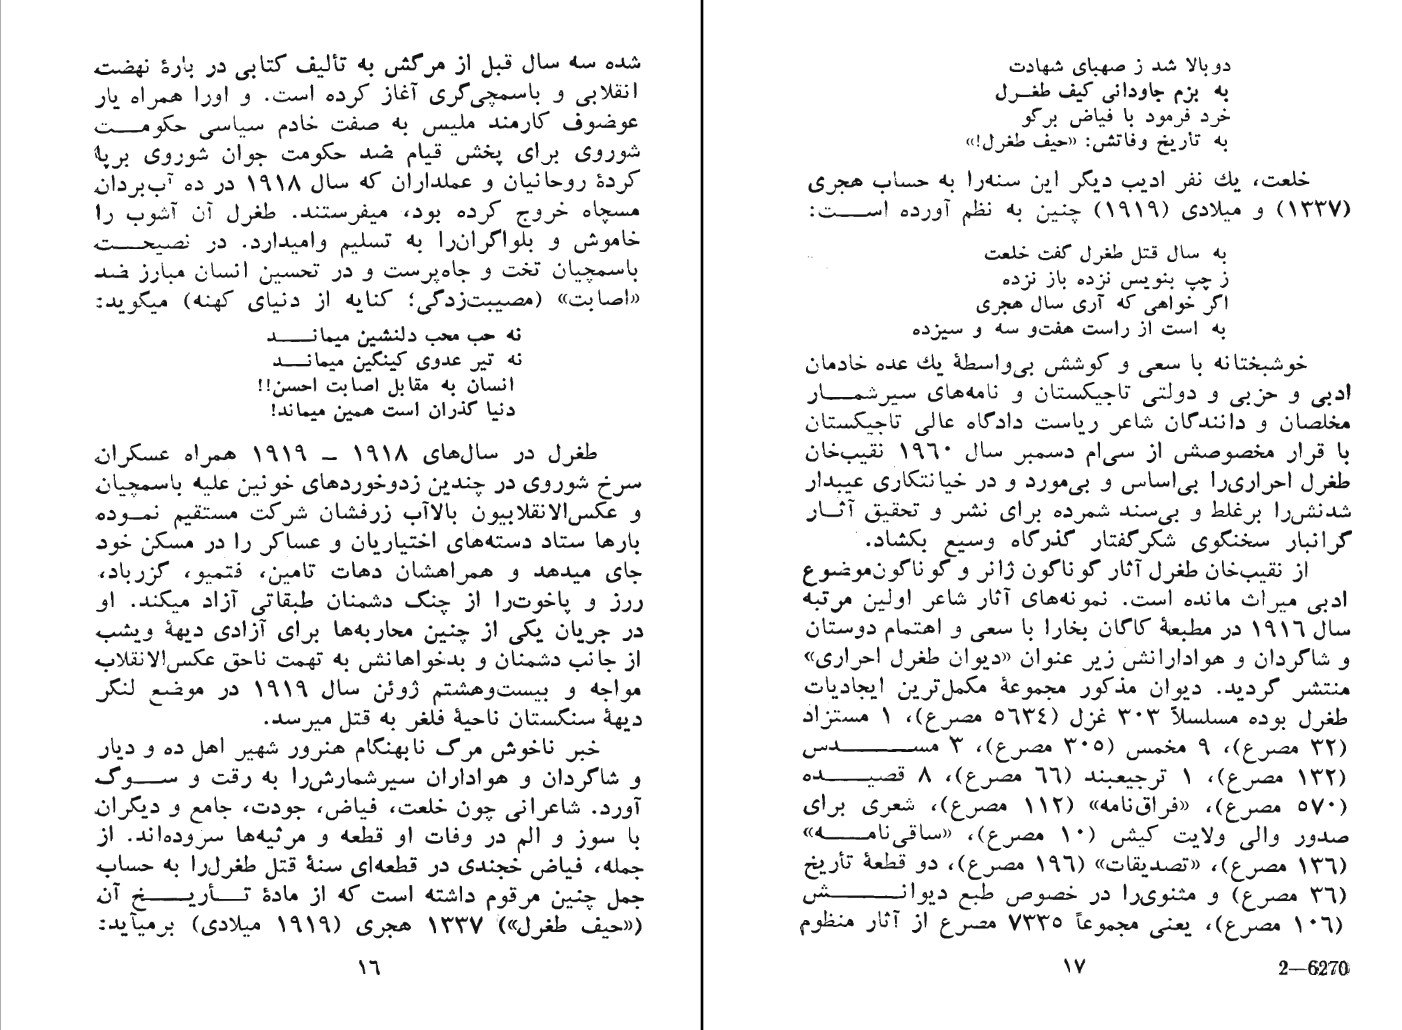 شده سه سال قبل از مرگش به تألیف کتابی در بارهٔ نهضت
انقلابی و باسمچی‌گری آغاز کرده است. و اورا همراه یار
عوضوف کارمند ملیس به صفت خادم سیاسی حکومت
شوروی برای پخش قیام ضد حکومت جوان شوروی برپا
کردهٔ روحانیان و عملداران که سال ۱۹۱۸ در ده آب‌بردان
مسچاه خروج کرده بود، میفرستند. طغرل آن آشوب را
خاموش و بلواگران‌را به تسلیم وامیدارد. در نصیحت
باسمچیان تخت و جاه‌پرست و در تحسین انسان مبارز ضد
«اصابت» (مصیبت‌زدگی؛ کنایه از دنیای کهنه) میگوید:
نه حب محب دلنشین میماند
نه تیر عدوی کینگین میماند
انسان به مقابل اصابت احسن!!
دنیا گذران است همین میماند!
طغرل در سال‌های ۱۹۱۸ – ۱۹۱۹ همراه عسکران
سرخ شوروی در چندین زدوخوردهای خونین علیه باسمچیان
و عکس‌الانقلابیون بالاآب زرفشان شرکت مستقیم نموده
بارها ستاد دسته‌های اختیاریان و عساکر را در مسکن خود
جای میدهد و همراهشان دهات تامین، فتمیو، گزرباد،
ررز و پاخوت‌را از چنگ دشمنان طبقاتی آزاد میکند. او
در جریان یکی از چنین محاربه‌ها برای آزادی دیههٔ ویشب
از جانب دشمنان و بدخواهانش به تهمت ناحق عکس‌الانقلاب
مواجه و بیست‌وهشتم ژوئن سال ۱۹۱۹ در موضع لنگر
دیههٔ سنگستان ناحیهٔ فلغر به قتل میرسد.
خبر ناخوش مرگ نابهنگام هنرور شهیر اهل ده و دیار
و شاگردان و هواداران سیرشمارش‌را به رقت و سوگ
آورد. شاعرانی چون خلعت، فیاض، جودت، جامع و دیگران
با سوز و الم در وفات او قطعه و مرثیه‌ها سروده‌اند. از
جمله، فیاض خجندی در قطعه‌ای سنهٔ قتل طغرل‌را به حساب
جمل چنین مرقوم داشته است که از مادهٔ تأریخ آن
(«حیف طغرل») ۱۳۳۷ هجری (۱۹۱۹ میلادی) برمیآید:
۱٦
دوبالا شد ز صهبای شهادت
به بزم جاودانی کیف طغرل
خرد فرمود با فیاض برگو
به تأریخ وفاتش: «حیف طغرل!»
خلعت، یك نفر ادیب دیگر این سنه‌را به حساب هجری
(۱۳۳۷) و میلادی (۱۹۱۹) چنین به نظم آورده است:
به سال قتل طغرل گفت خلعت
ز چپ بنویس نزده باز نزده
اگر خواهی که آری سال هجری
به است از راست هفت‌و سه و سیزده
خوشبختانه با سعی و کوشش بی‌واسطهٔ یك عده خادمان
ادبی و حزبی و دولتی تاجیکستان و نامه‌های سیرشمار
مخلصان و دانندگان شاعر ریاست دادگاه عالی تاجیکستان
با قرار مخصوصش از سی‌ام دسمبر سال ۱۹٦۰ نقیب‌خان
طغرل احراری‌را بی‌اساس و بی‌مورد و در خیانتکاری عیبدار
شدنش‌را برغلط و بی‌سند شمرده برای نشر و تحقیق آثار
گرانبار سخنگوی شکرگفتار گذرگاه وسیع بکشاد.
از نقیب‌خان طغرل آثار گوناگون ژانر و گوناگون‌موضوع
ادبی میراث مانده است. نمونه‌های آثار شاعر اولین مرتبه
سال ۱۹۱٦ در مطبعهٔ کاگان بخارا با سعی و اهتمام دوستان
و شاگردان و هوادارانش زیر عنوان «دیوان طغرل احراری»
منتشر گردید. دیوان مذکور مجموعهٔ مکمل‌ترین ایجادیات
طغرل بوده مسلسلاً ۳۰۳ غزل (۵٦۳٤ مصرع)، ۱ مستزاد
(۳۲ مصرع)، ۹ مخمس (۳۰۵ مصرع)، ۳ مسدس
(۱۳۲ مصرع)، ۱ ترجیعبند (٦٦ مصرع)، ۸ قصیده
(۵۷۰ مصرع)، «فراق‌نامه» (۱۱۲ مصرع)، شعری برای
صدور والی ولایت کیش (۱۰ مصرع)، «ساقی‌نامه»
(۱۳٦ مصرع)، «تصدیقات» (۱۹٦ مصرع)، دو قطعهٔ تأریخ
(۳٦ مصرع) و مثنوی‌را در خصوص طبع دیوانش
(۱۰٦ مصرع)، یعنی مجموعاً ۷۳۳۵ مصرع از آثار منظوم
۱۷
2—6270